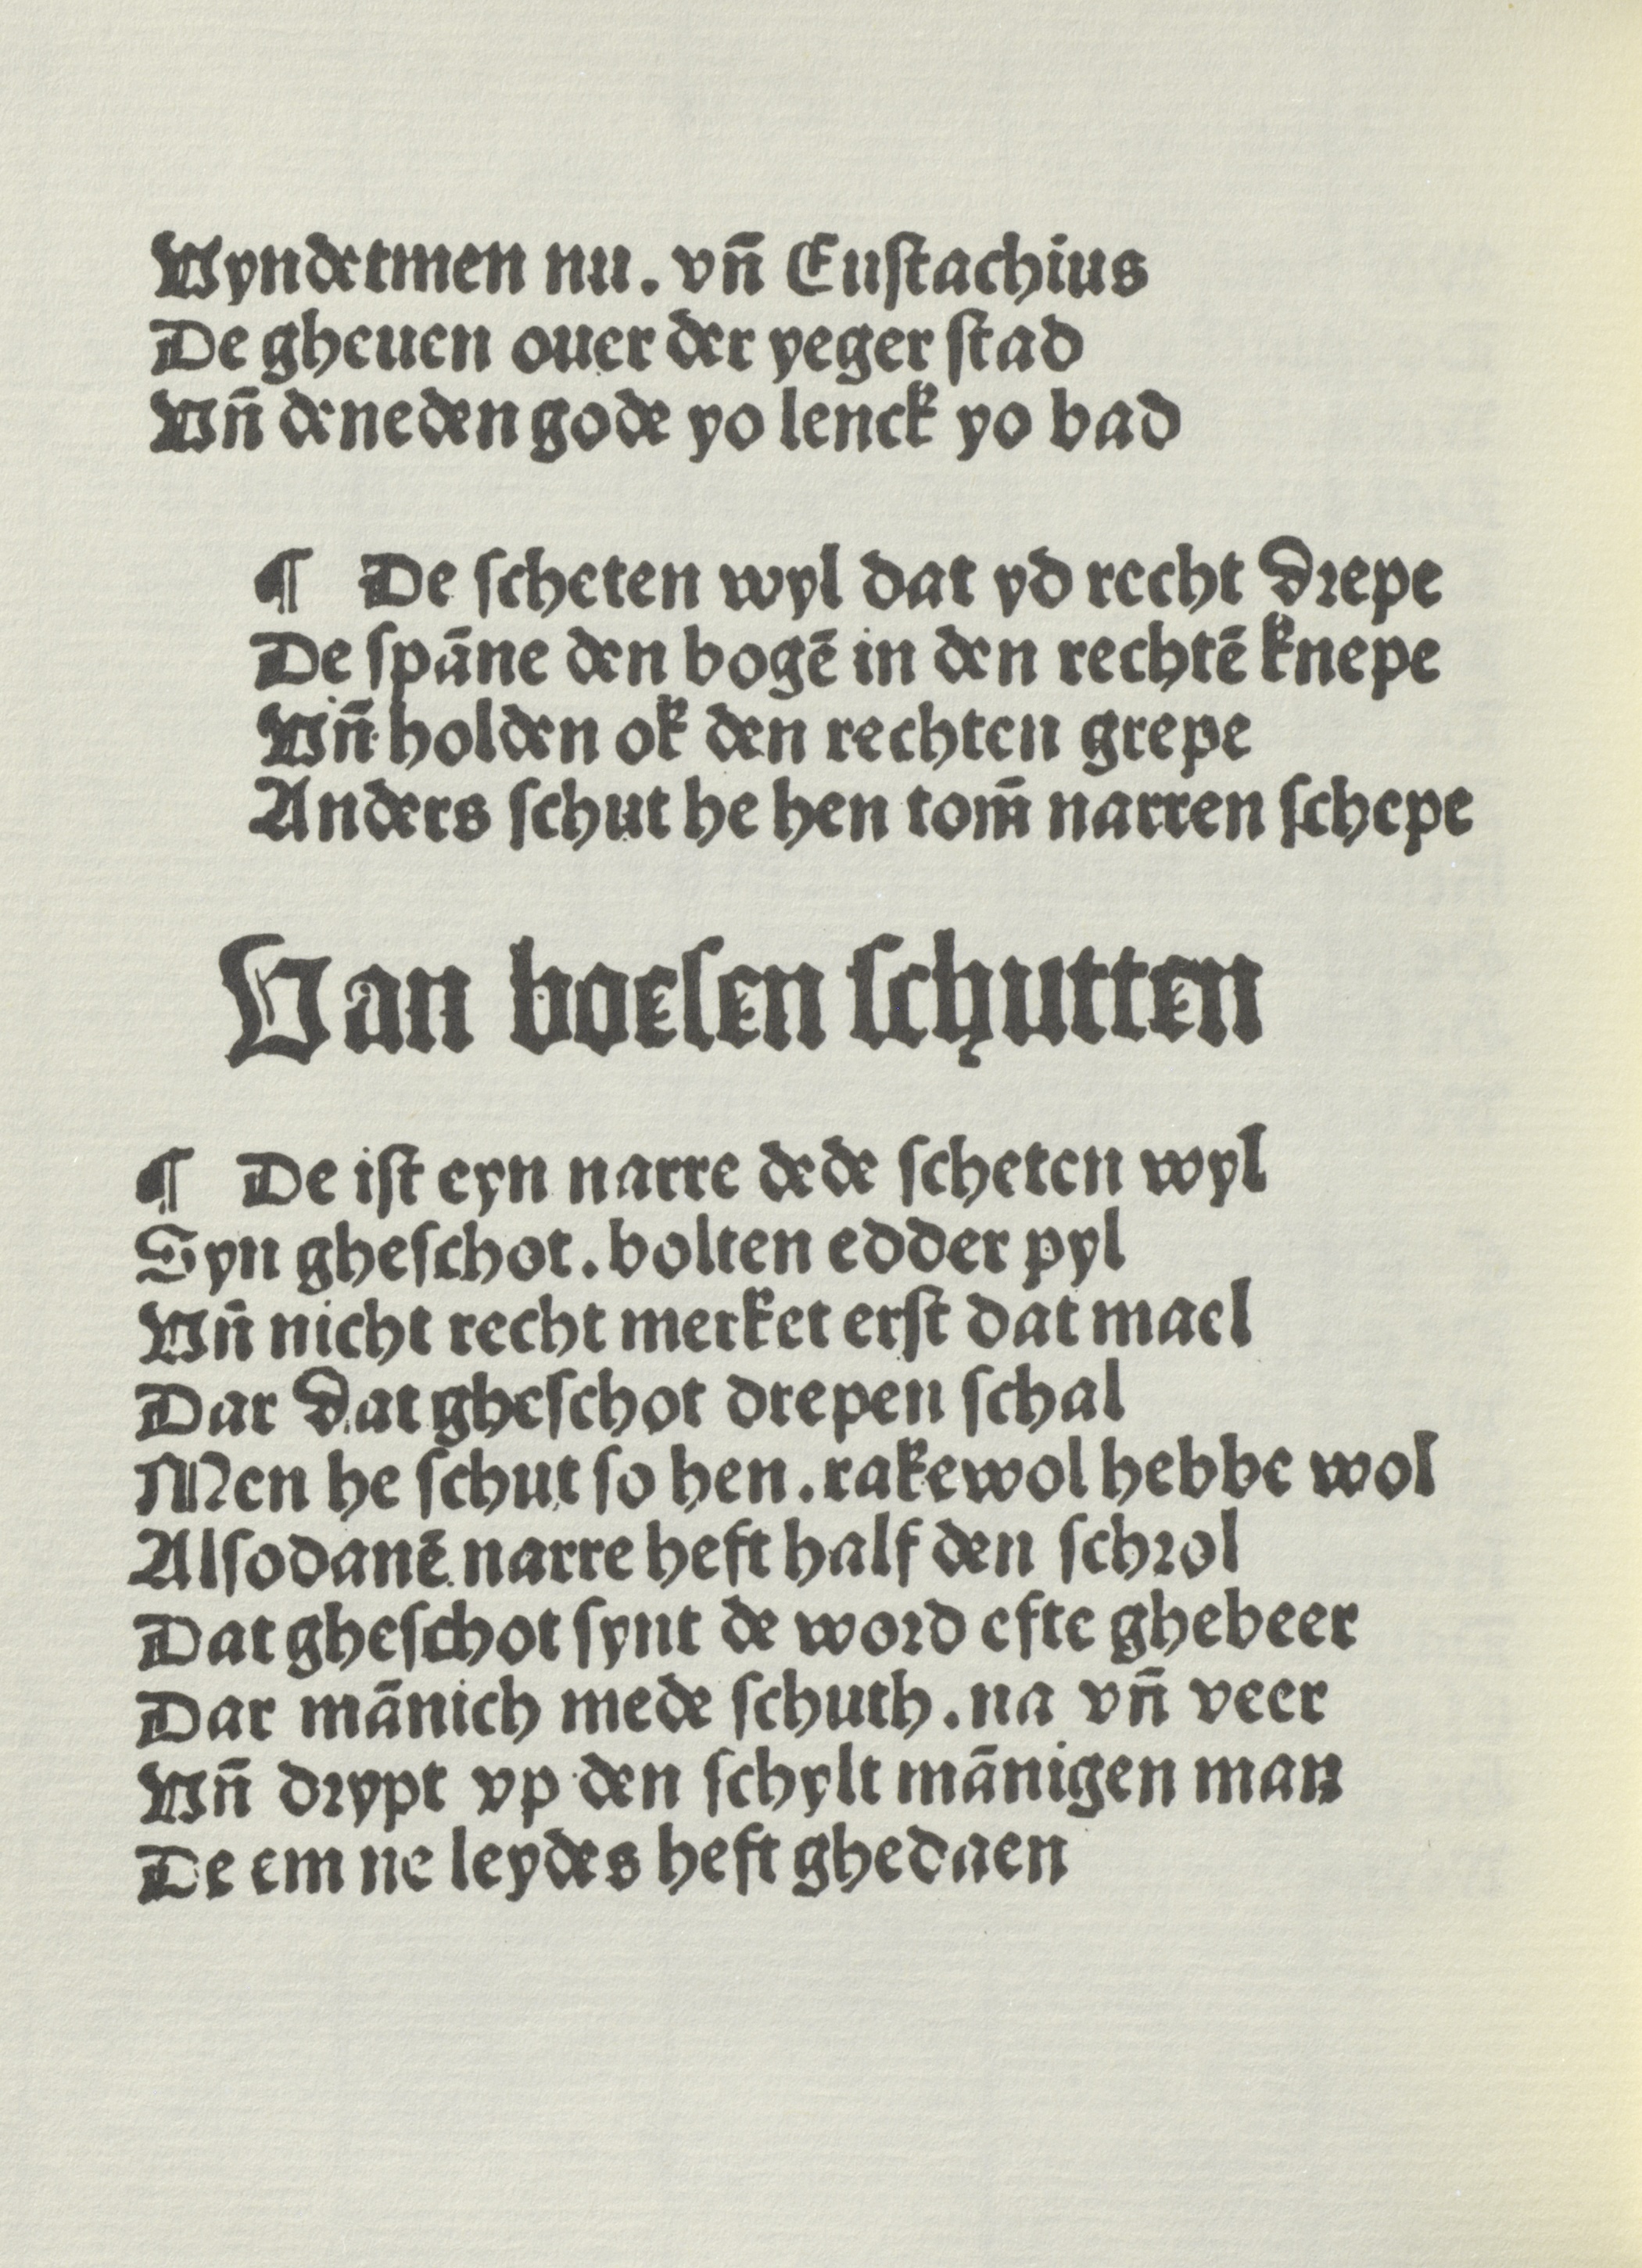 Vyndetmen nu. vn̄ Euſtachius
De gheuen ouer der yeger ſtad
Vn̄ deneden gode yo lenck yo bad
¶ De ſcheten wyl dat yd recht drepe
De ſpāne den bogē in den rechtē knepe
Vn̄ holden ok den rechten grepe
Anders ſchut he hen tom̄ narren ſchepe
Van boeſen ſchutten
¶ De iſt eyn narre dede ſcheten wyl
Syn gheſchot. bolten edder pyl
Vn̄ nicht recht merket erſt dat mael
Dar dat gheſchot drepen ſchal
Men he ſchut ſo hen. rakewol hebbe wol
Alſodanē narre heft half den ſchrol
Dat gheſchot ſynt de word efte ghebeer
Dar mānich mede ſchuth. na vn̄ veer
Vn̄ drypt vp den ſchylt mānigen man
De em ne leydes heft ghedaen